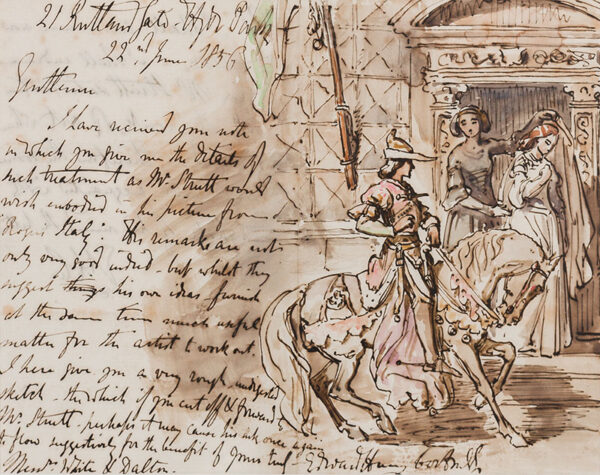 21 Rutland Gate - Hyde Park
22nd June 1856
Gentlemen
I have received your note
in which you give me the details of
such treatment as Mr Strutt would
wish embodied in his picture from
"Rogers Italy" His remarks are not
only very good indeed - but whilst they
suggest things his own ideas furnish
at the same time much useful
matter for the artist to work out.
I here give you a very rough undigested
sketch - the which if you cut off & forward to
Mr Strutt - perhaps it may cause his ink once again
to flow suggestively for the benefit of Yours truly Edward Hen Corbould
Messrs White & Dalton.